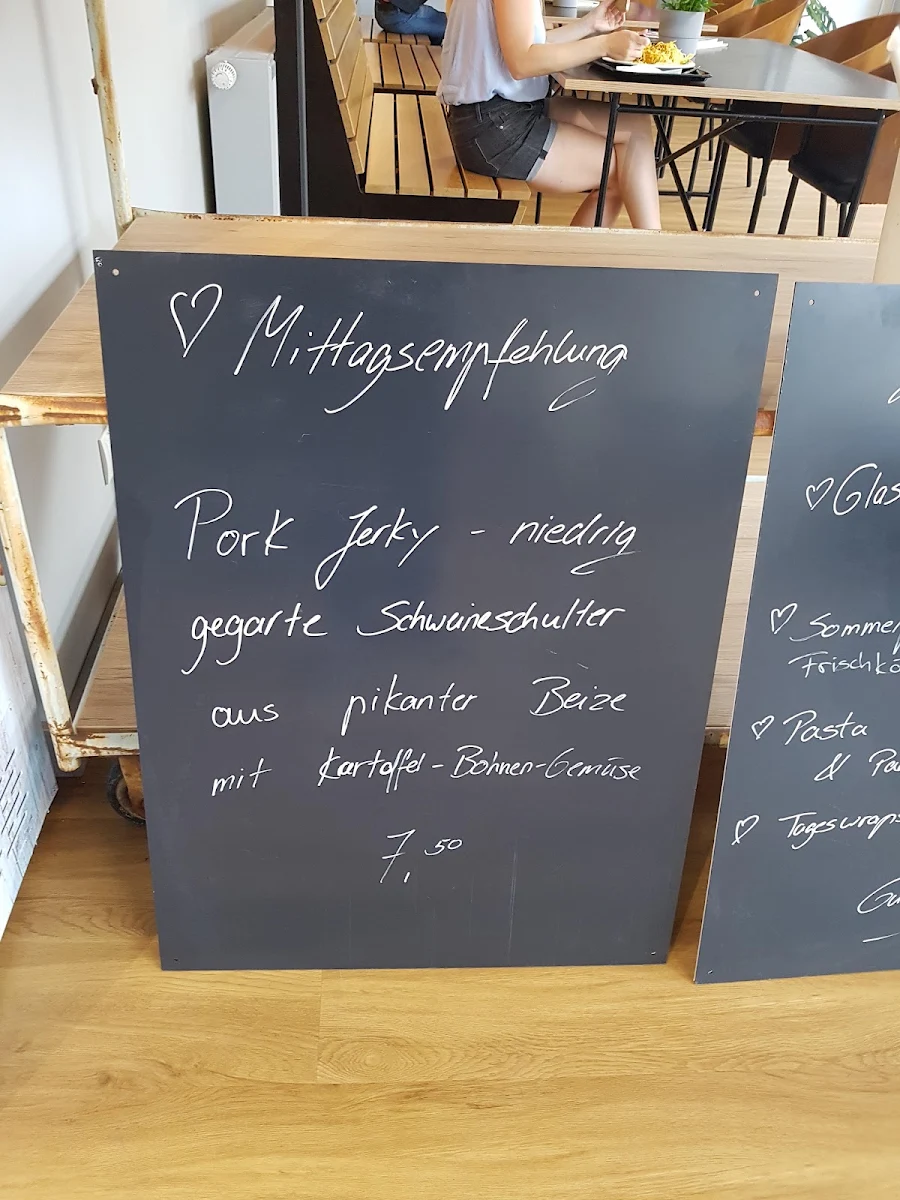 ♡ Mittagsempfehlung
Pork Jerky - niedrig
gegarte Schweineschulter
aus pikanter Beize
mit Kartoffel-Bohnen-Gemüse
7,50
♡ Glas
♡ Sommer
Frischkä
♡ Pasta
&
♡ Tageswraps